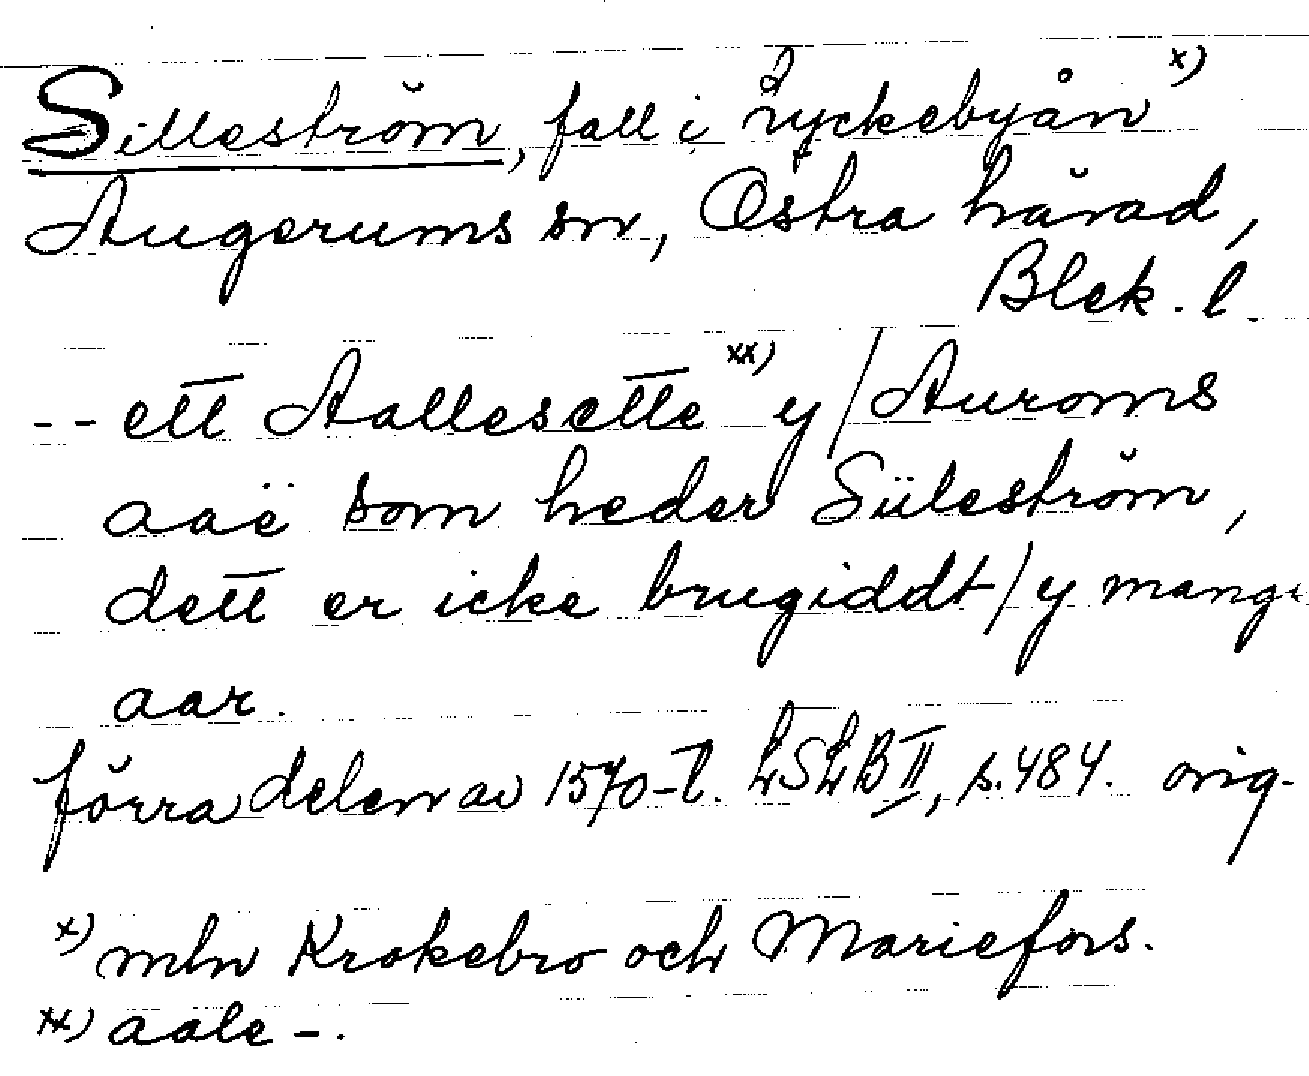 Silleström, fall i Lyckebyån x)
Augerums sn, Östra härad,
Blek. l.
-- ett Aallesette xx) y / Auroms
aaë som heder Süleström,
dett er icke brugiddt / y mange
aar.
förra delen av 1570-t. LSLB II, s. 484. orig.
x) mln Krokebro och Mariefors.
xx) aale -.